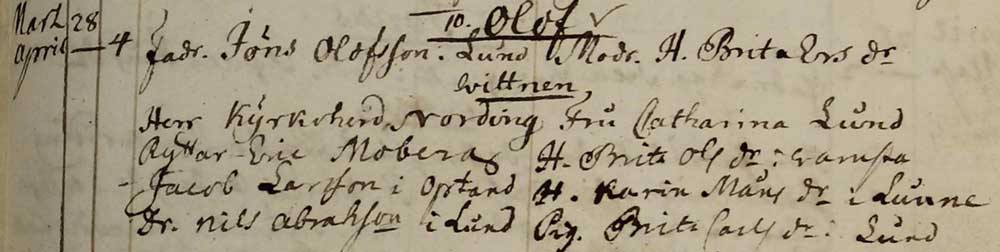 Mart 28 10. Olof
April — 4 Fadr. Jöns Olofsson i Lund Modr. H. Brita Ers dr
Wittnen
Herr Kyrkoherd Nording Fru Catharina Lund
Ryttar Eric Moberg H. Brita Ols dr i
Jacob Larsson i Opstand H. Karin Måns dr i Lunne
Dr. Nils Abrahson i Lund Pig. Brita Carls dr i Lund